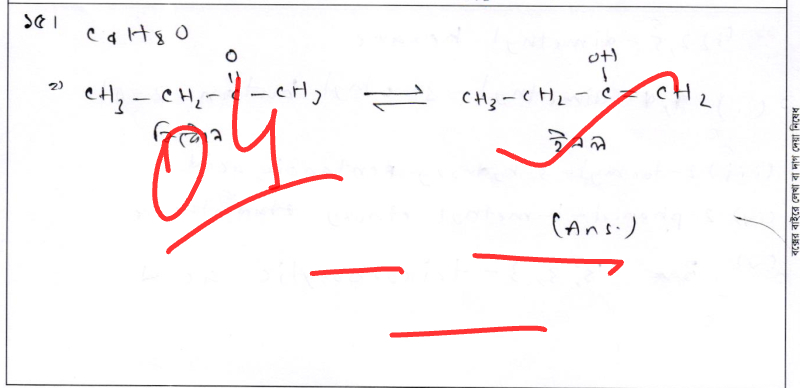 ১৫।  C4H8O
O          OH
২) CH3 – CH2 – C – CH3 ⇌ CH3 – CH2 – C = CH2
কিটোন          ইনল
04
(Ans.)
বক্সের বাইরে লেখা বা দাগ দেয়া নিষেধ